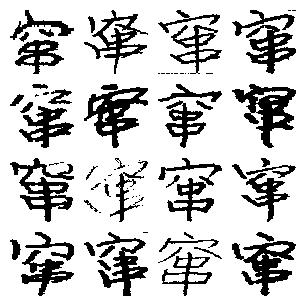 窜窜窜窜
窜窜窜窜
窜窜窜窜
窜窜窜窜